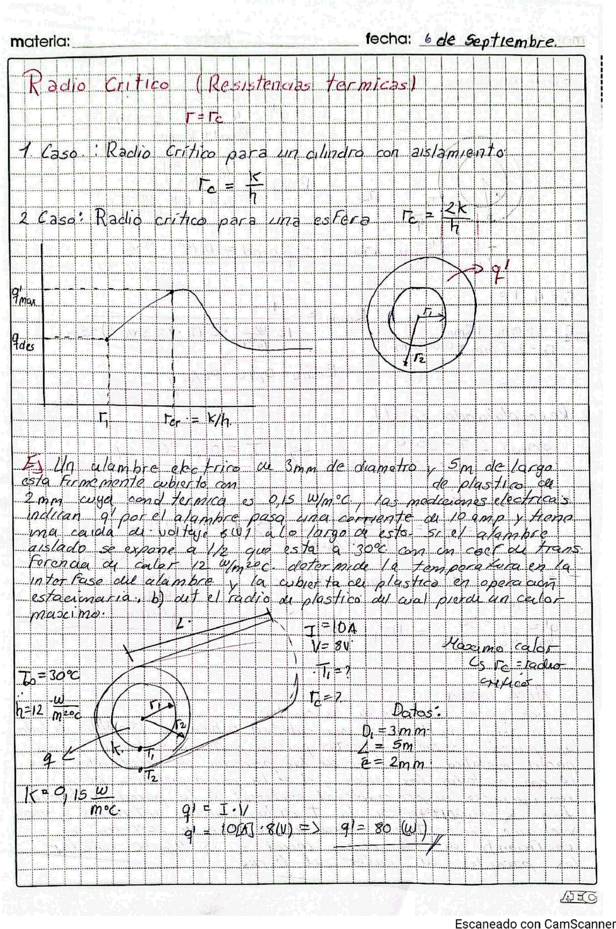 materia:
fecha: 6 de Septiembre.
Radio Critico (Resistencias termicas)
r = rc
1 Caso : Radio Critico para un cilindro con aislamiento
rc = k/h
2 Caso: Radio critico para una esfera rc = 2k/h
q'max
qdes
r1
rcr = k/h
q'
r1
r2
Ej Un alambre electrico de 3mm de diametro y 5m de largo
esta firmemente cubierto con de plastico de
2mm cuya cond termica es 0,15 w/m°c, las mediciones electricas
indican q' por el alambre pasa una corriente de 10 amp y tiene
una caida de voltaje 8(v) a lo largo de este. Si el alambre
aislado se expone a 1/2 que esta a 30°c con un coef de trans
ferencia de calor 12 w/m²°c determide la temperatura en la
interfase del alambre y la cubierta del plastico en operación
estacionaria, b) det el radio de plastico del cual pierde un calor
maximo.
L
I = 10A
V = 8V
T1 = ?
rc = ?
Maximo calor
Ls rc = radio
critico
T∞ = 30°c
h = 12 w/m²°c
r1
r2
K
T1
T2
q
K = 0,15 w/m°c
Datos:
D1 = 3mm
L = 5m
e = 2mm
q' = I·V
q' = 10[A]·8(V) => q' = 80 (w)
AEC
Escaneado con CamScanner